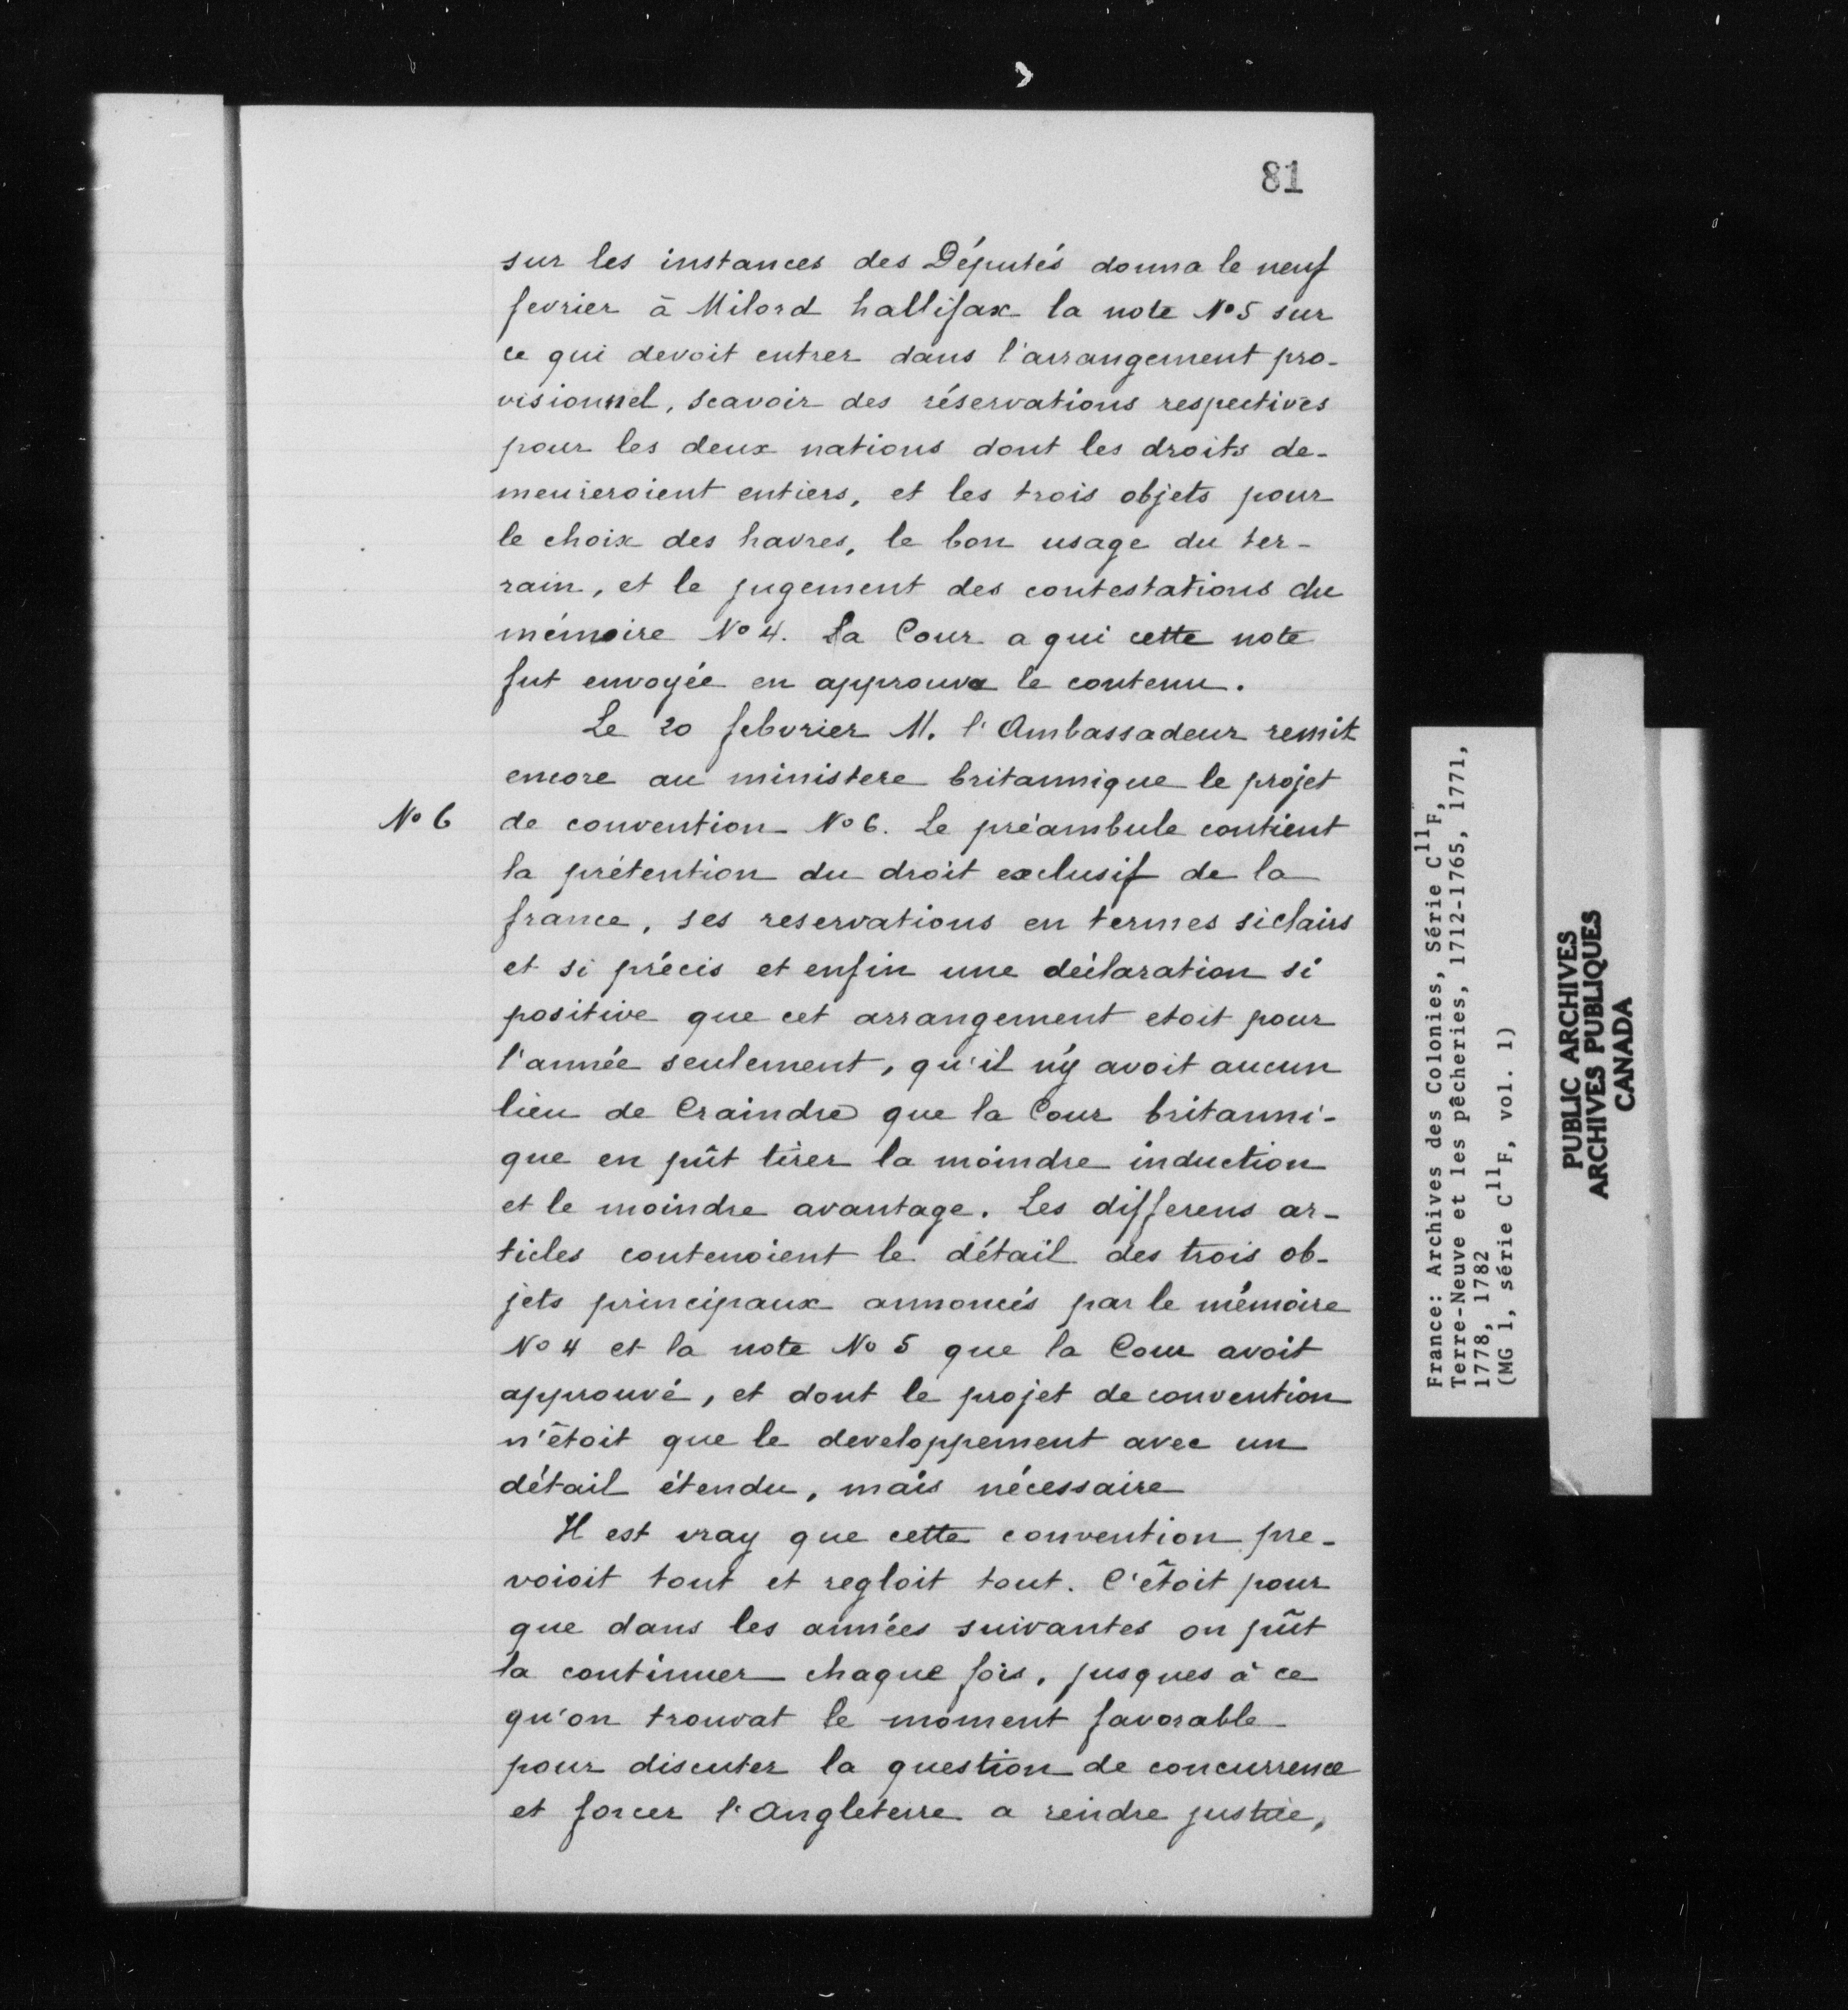 81
sur les instances des Députés donna le neuf
fevrier à Milord hallifax la note No 5 sur
ce qui devoit entrer dans l'arrangement pro-
visionnel, scavoir des réservations respectives
pour les deux nations dont les droits de-
meureroient entiers, et les trois objets pour
le choix des havres, le bon usage du ter-
rain, et le jugement des contestations du
mémoire No 4. La Cour a qui cette note
fut envoyée en approuva le contenu.
Le 20 febvrier M. l'Ambassadeur remit
encore au ministere britannique le projet
No 6 de convention No 6. Le préambule contient
la prétention du droit exclusif de la
france, ses reservations en termes si clairs
et si précis et enfin une déclaration si
positive que cet arrangement etoit pour
l'année seulement, qu'il n'y avoit aucun
lieu de Craindre que la Cour britanni-
que en pût tirer la moindre induction
et le moindre avantage. Les differens ar-
ticles contenoient le détail des trois ob-
jets principaux annoncés par le mémoire
No 4 et la note No 5 que la Cour avoit
approuvé, et dont le projet de convention
n'étoit que le developpement avec un
détail étendu, mais nécessaire
Il est vray que cette convention pre-
voioit tout et regloit tout. C'étoit pour
que dans les années suivantes on pût
la continuer chaque fois, jusques à ce
qu'on trouvat le moment favorable
pour discuter la question de concurrence
et forcer l'Angleterre a rendre justice,
France: Archives des Colonies, Série C11F,
Terre-Neuve et les pêcheries, 1712-1765, 1771,
1778, 1782
(MG 1, série C11F, vol. 1)
PUBLIC ARCHIVES
ARCHIVES PUBLIQUES
CANADA